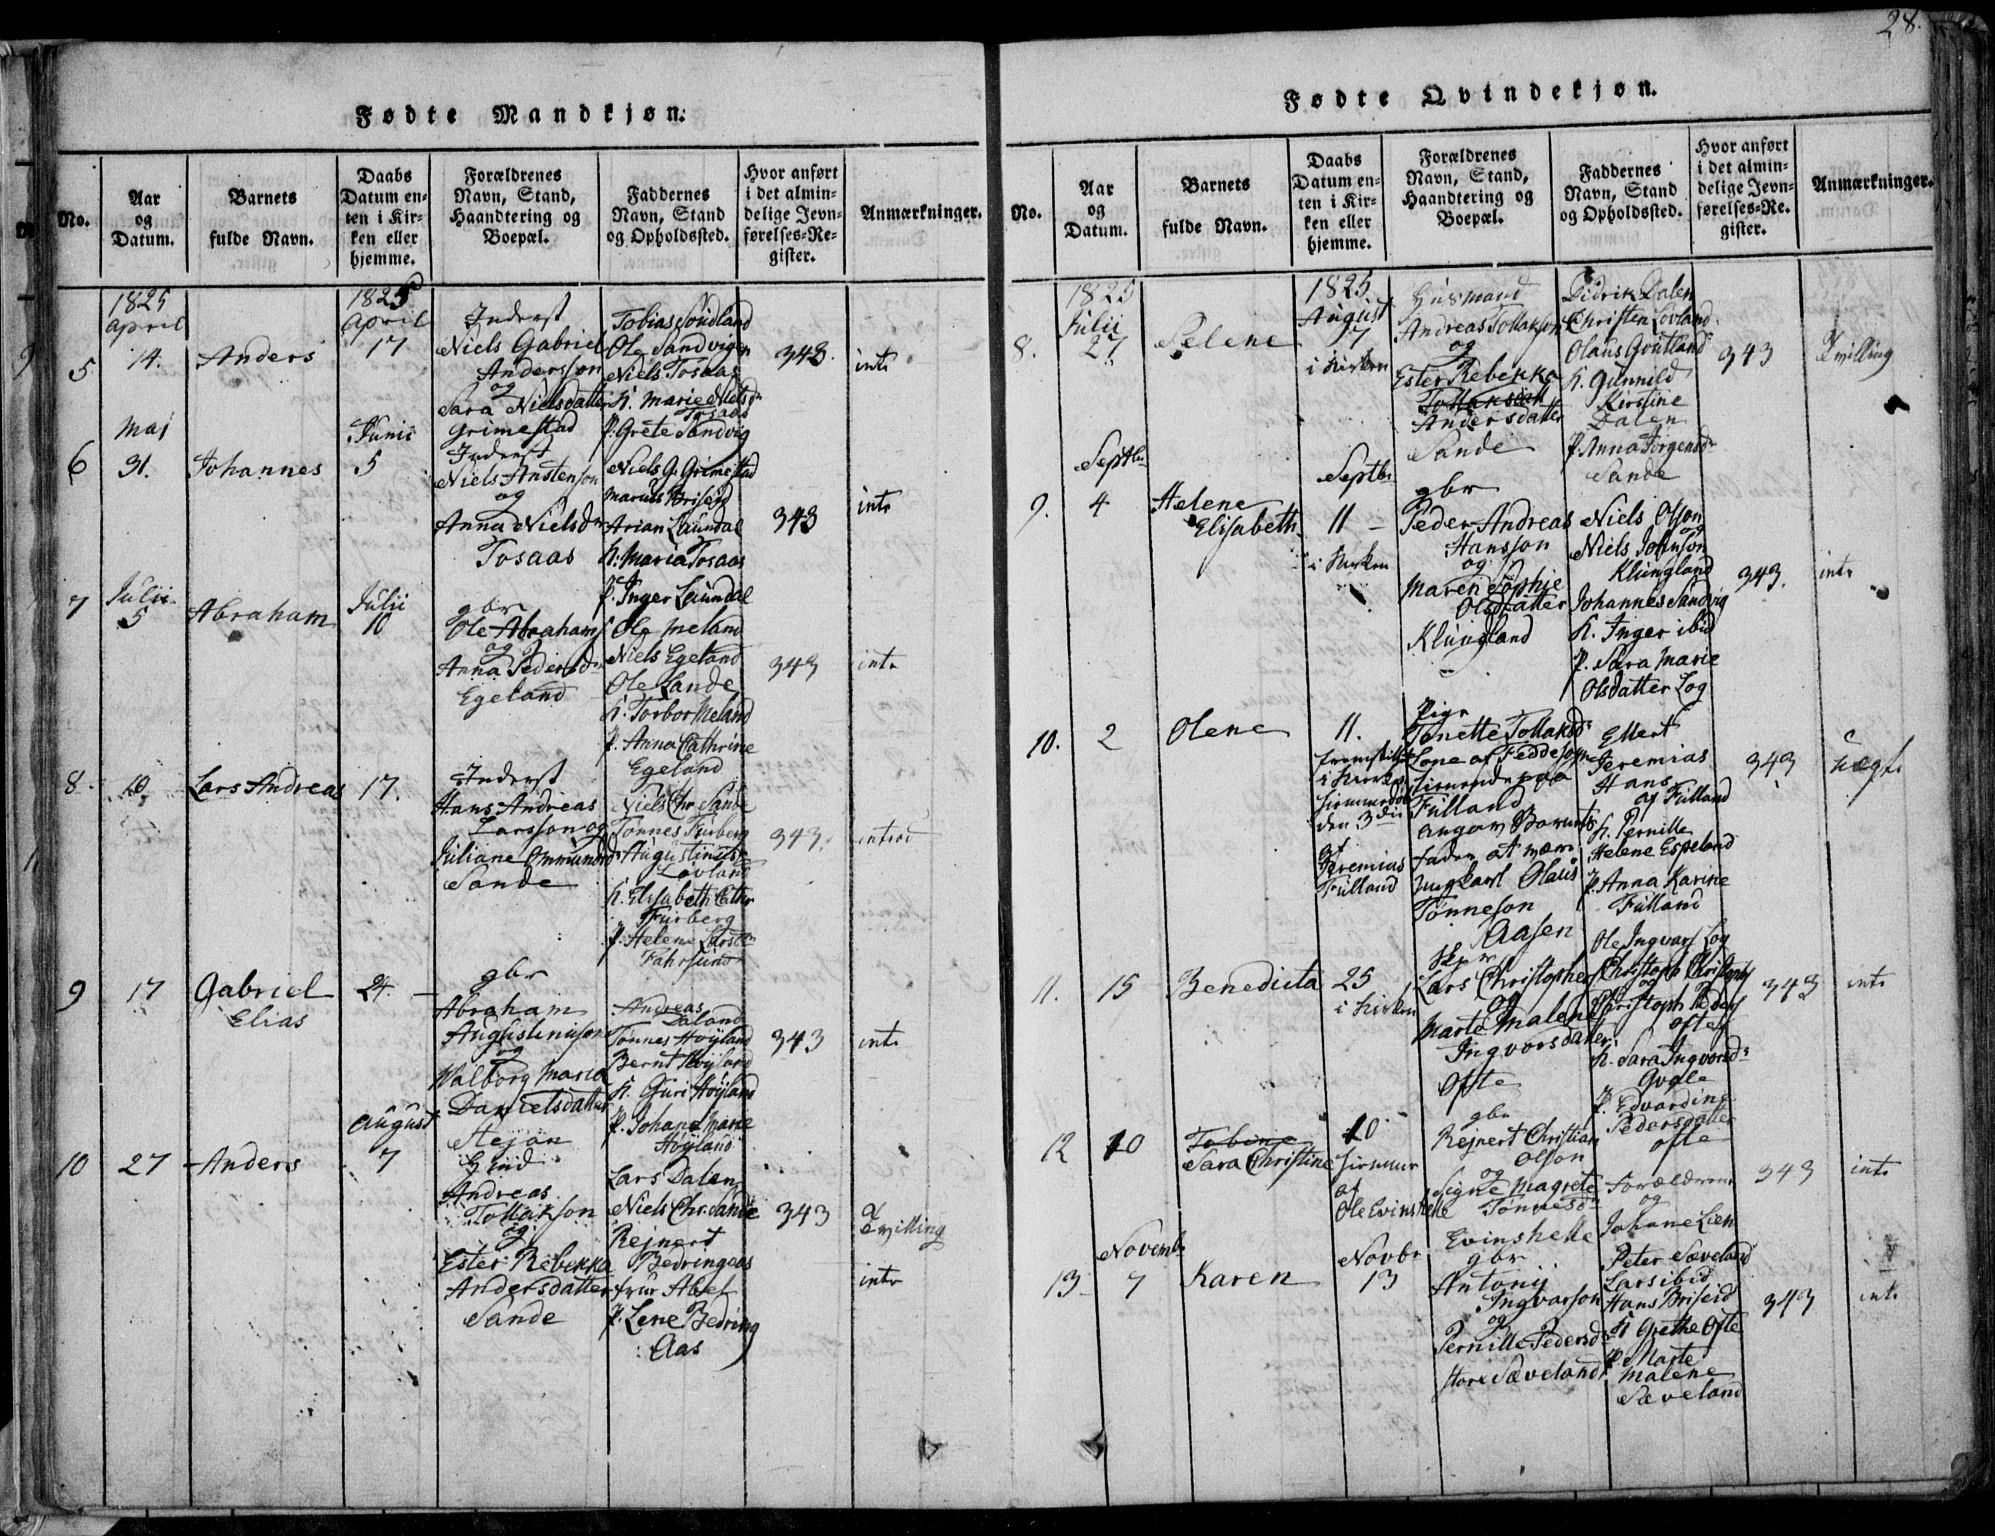 28.
Fødte Mandkjøn.
No.
Aar
og
Datum.
Barnets
fulde Navn.
Daabs
Datum en-
ten i Kir-
ken eller
hjemme.
Forældrenes
Navn, Stand,
Haandtering og
Boepæl.
Faddernes
Navn, Stand
og Opholdssted.
Hvor anført
i det almin-
delige Jevn-
førelses-Re-
gister.
Anmærkninger.
1825
April
5
14.
Anders
1825
April
17
Inderst
Niels Gabriel
Andersson
og
Sara Nielsdatter
Grimestad
Ole Sandvigen
Niels Tosaas
K. Marie Nielsdr
Tosaas
P. Grete Sandvig
343.
intr
Maj
6
31.
Johannes
Junii
5
Inderst
Niels Anstenson
og
Anna Nielsdr
Tosaas
Niels G. Grimestad
Marcus Briseid
Arian Laundal
K. Maria Tosaas
P. Inger Laundal
343
intr
Julii
7
5
Abraham
Julii
10
gbr
Ole Abrahams
og
Anna Pedersdr
Egeland
Ole Meland
Niels Egeland
Ole Lande
K. Torbor Meland
P. Anna Cathrine
Egeland
343
intr
8
10
Lars Andreas
17.
Inderst
Hans Andreas
Larsson og
Juliane Ommundsdr
Sande
Niels Chr. Sande
Tønnes Furberg
Augustinus
Lovland
K. Elisabeth Cathr
Furberg
P. Helene Larsdr
Fahrsund
343.
introd
9
17
Gabriel
Elias
24.
gbr
Abraham
Augustinuson
og
Walborg Maria
Danielsdatter
Stejan
Andreas
Daland
Tønnes Høyland
Bernt Høyland
K. Guri Høyland
P. Johane Marie
Høyland
343
intr
August
10
27
Anders
7
Huusmd
Andreas
Tollakson
og
Ester Rebekka
Andersdatter
Sande
Lars Dalen
Niels Chr. Sande
Rejnert
Bedringaas
frue Abel
P. Lene Bedring
Aas
343
Tvilling
intr
Fødte Qvindekjøn.
No.
Aar
og
Datum.
Barnets
fulde Navn.
Daabs
Datum en-
ten i Kir-
ken eller
hjemme.
Forældrenes
Navn, Stand,
Haandtering og
Boepæl.
Faddernes
Navn, Stand
og Opholdssted.
Hvor anført
i det almin-
delige Jevn-
førelses-Re-
gister.
Anmærkninger.
1825
Julii
8.
27
Selene
1825
August
7
i Kirken
Husmand
Andreas Tollakson
og
Ester Rebekka
Andersdatter
Sande
Didrik Dalen
Christen Lovland
Olaus Grutland
K. Gunnild
Kirstine
Dalen
P. Anna Jørgensdr
Sande
343
Tvilling
Septbr
9.
4
Helene
Elisabeth
Septbr
11
i Kirken
gbr
Peder Andreas
Hansson
og
Maren Sophie
Olsdatter
Klungland
Niels Olson
og
Niels Johnson
Klungland
Johannes Sandvig
K. Inger ibid
P. Sara Marie
Olsdatter Log
343.
intr
10.
2
Olene
11.
fremstillet
i Kirken
hjemmedøbt
den 3die
af
Jeremias
Fulland
Pige
Tønette Tollaksdr
Lone af Feddesogn
tienende paa
Fulland
angav Barnets
fader at være
Ungkarl Olaus
Tønneson
Aasen
Ellert
Jeremias
Hans
af Fulland
K. Pernille
Helene Espeland
P. Anna Karine
Fulland
343
Uægte
11.
15
Benedicta
25
i Kirken
Lars Christophers
og
Marte Malene
Ingvorsdatter
Ofte
Ole Ingvars Log
Christoph Christophs
og
Christoph Peders
Ofte
K. Sara Ingvorsdr
Qvale
P. Edvardine
Pedersdatter
Ofte
343
intr
12
10
Tobine
Sara Christine
10
hiemme
af
Ole Evinshelle
gbr
Rejnert Christian
Olson
og
Signe Magrete
Tønnesdr
Evinshelle
Forældrene
og
Johane Lien
343
intr
Novembr
13
7
Karen
Novbr
13
gbr
Antonij
Ingvarson
og
Pernille Pedersdr
Store Sæveland
Peter Sæveland
Lars ibid
Hans Briseid
K Grethe Ofte
P. Marte
Malene
Sæveland
343
intr